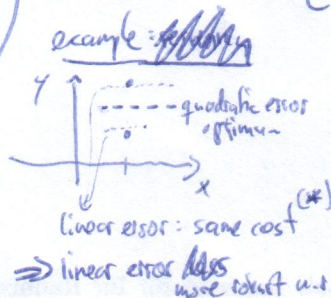 example:
y
quadratic error
optimum
x
linear error: same cost (*)
⇒ linear error
more robust